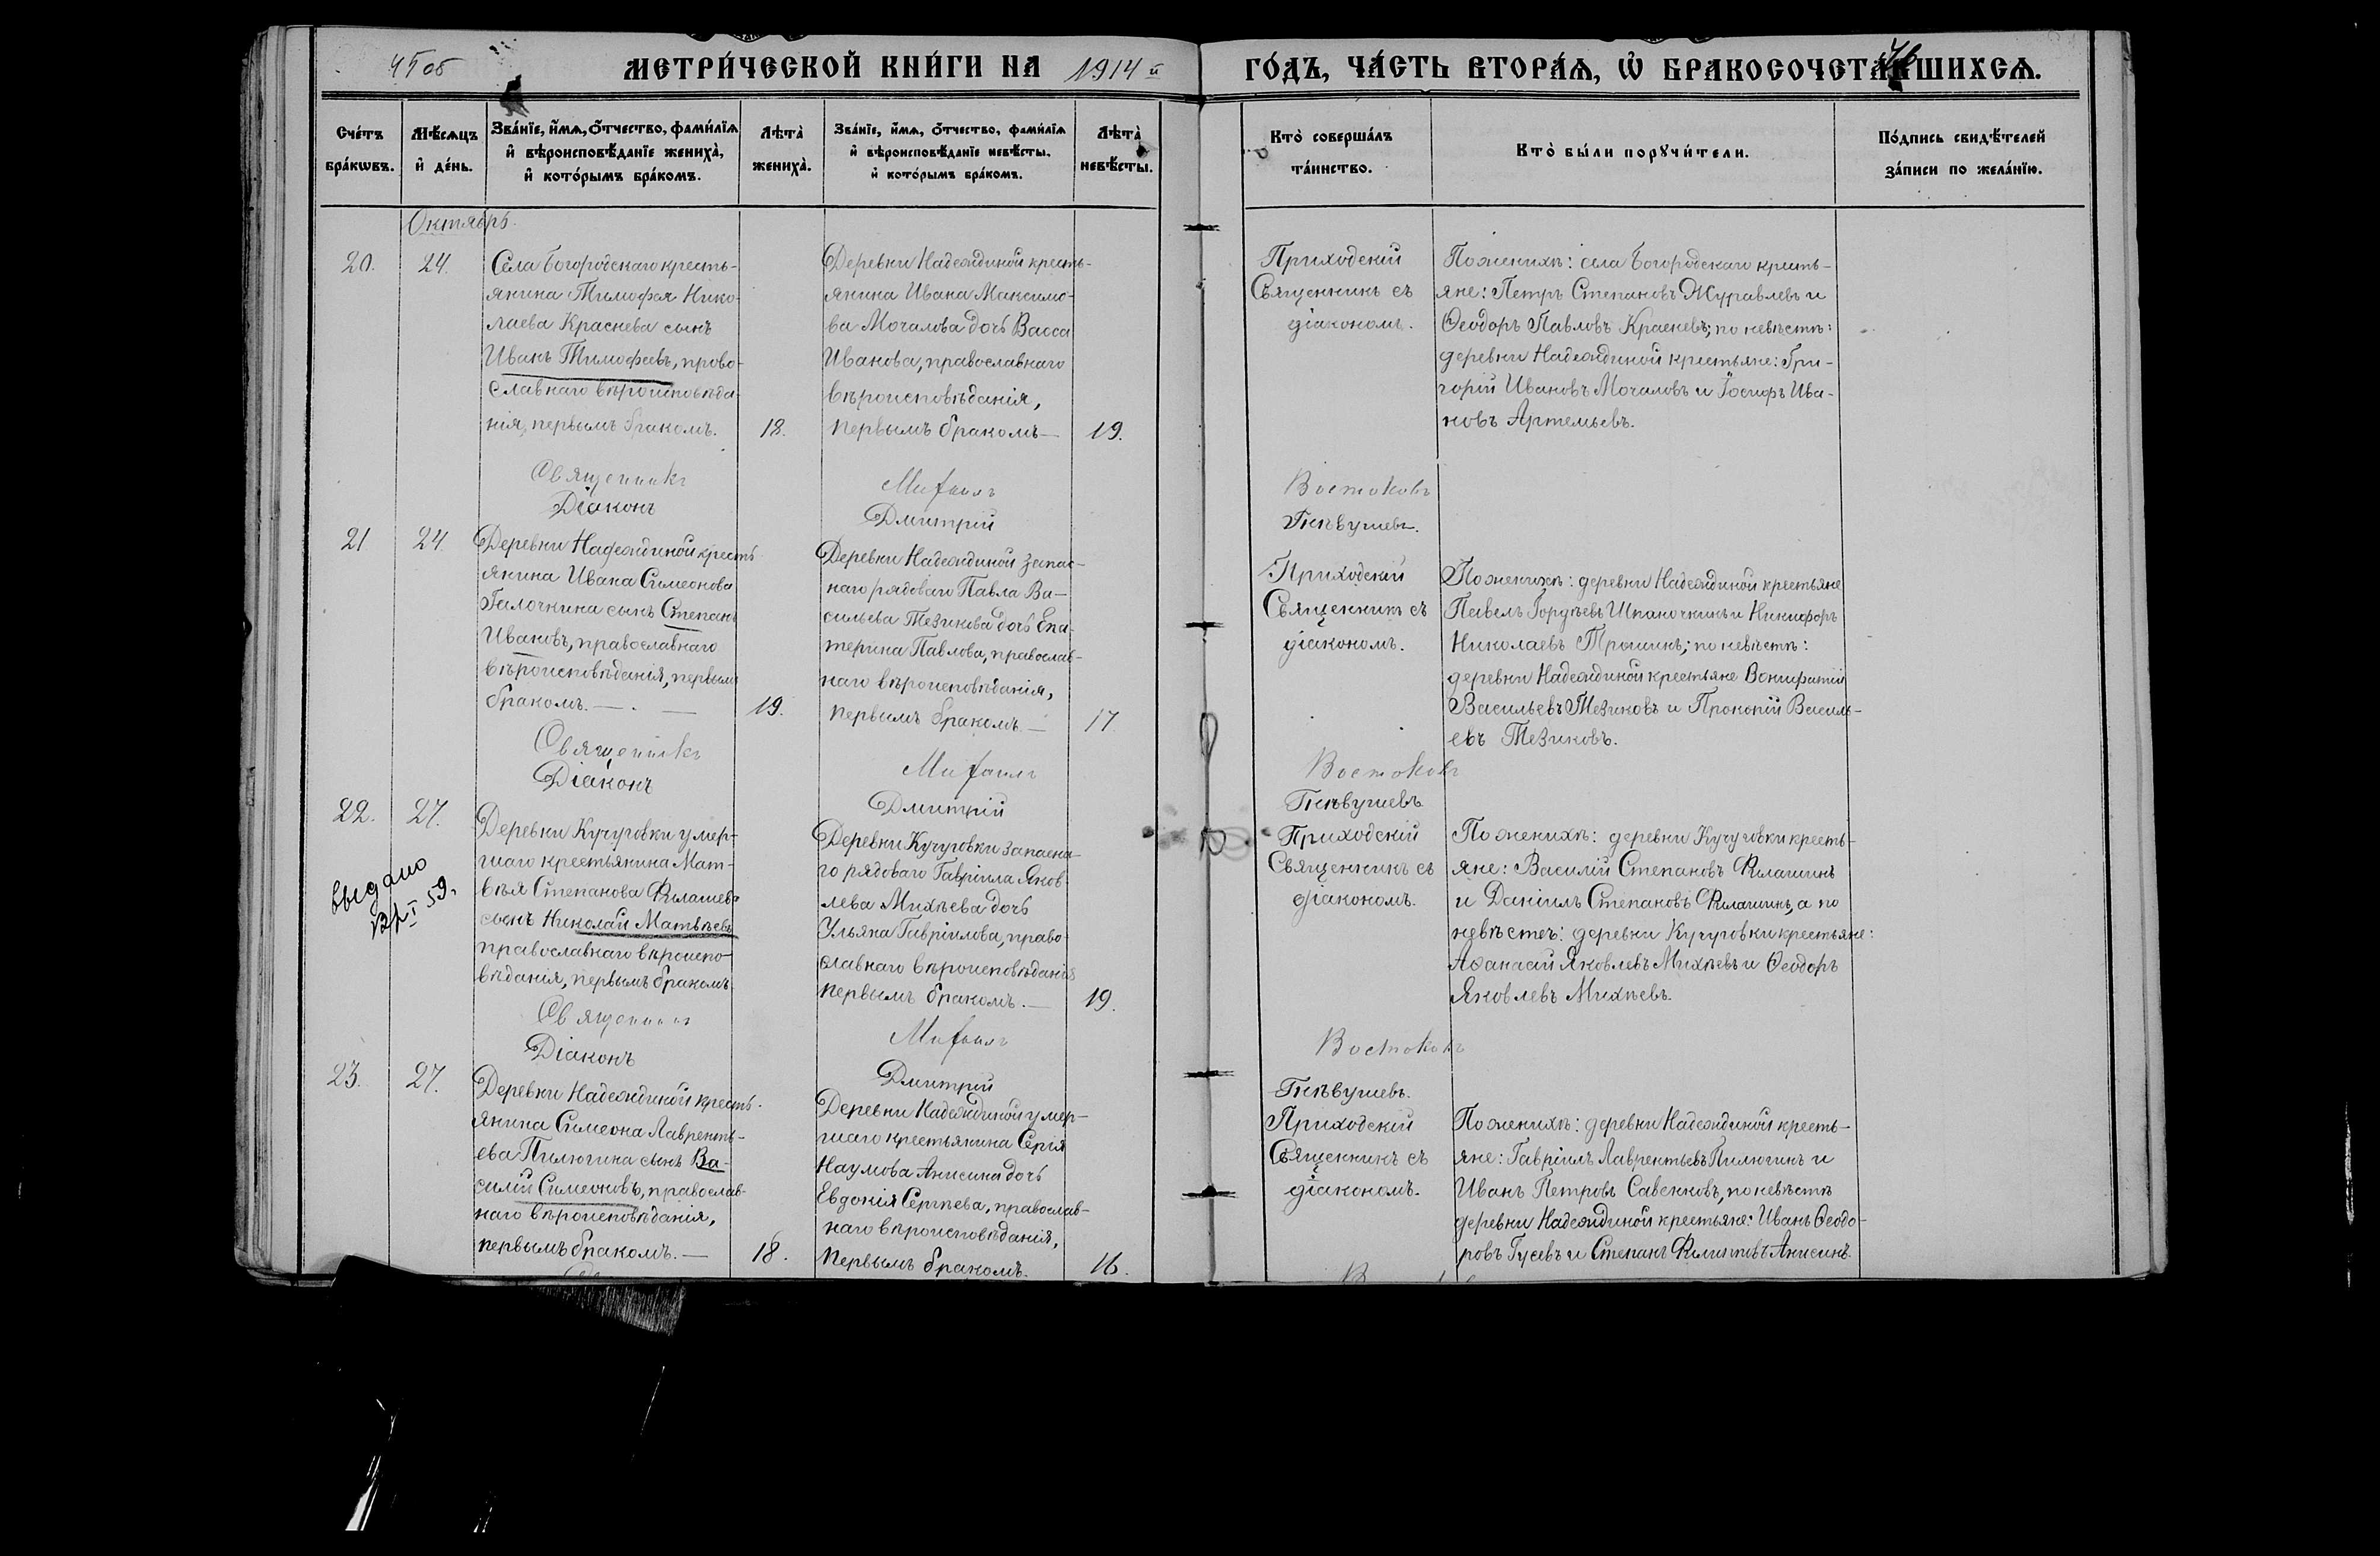 45 об
МЕТРИ́ЧЕСКОЙ КНИ́ГИ НА 1914 й
ГО́ДЪ, ЧА́СТЬ ВТОРА́Ѧ, Ѡ БРАКОСОЧЕТА́ВШИХСѦ.
46
Сче́тъ бра́кωвъ.
Мѣ́сѧцъ и҆ де́нь.
Зва́нїе, и҆́мѧ, о҆́тчество, фами́лїѧ
и҆ вѣроисповѣ́данїе жениха̀,
и҆ кото́рымъ бра́комъ.
Лѣта̀ жениха̀.
Зва́нїе, и҆́мѧ, о҆́тчество, фами́лїѧ
и҆ вѣроисповѣ́данїе невѣ́сты,
и҆ кото́рымъ бра́комъ.
Лѣта̀ невѣ́сты.
Кто̀ соверша́лъ
та́инство.
Кто̀ бы́ли порꙋчи́тели.
По́дпись свидѣ́телей
за́писи по жела́нїю.
Октябрь.
20.
24.
Села Богородскаго кресть-
янина Тимофея Нико-
лаева Краснева сынъ
Иванъ Тимофеевъ, право-
славнаго вѣроисповѣда-
нія, первымъ бракомъ.
18.
Деревни Надеждиной кресть-
янина Ивана Максимо-
ва Мочалова дочь Васса
Иванова, православнаго
вѣроисповѣданія,
первымъ бракомъ —
19.
Приходскій
Священникъ съ
діакономъ.
По женихѣ: села Богородскаго кресть-
яне: Петръ Степановъ Журавлевъ и
Ѳеодоръ Павловъ Красневъ; по невѣстѣ:
деревни Надеждиной крестьяне: Гри-
горій Ивановъ Мочаловъ и Іосифъ Ива-
новъ Артемьевъ.
Священникъ
Михаилъ
Востоковъ
Діаконъ
Дмитрій
Гнѣвушевъ.
21
24.
Деревни Надеждиной кресть-
янина Ивана Симеонова
Галочкина сынъ Степанъ
Ивановъ, православнаго
вѣроисповѣданія, первымъ
бракомъ. — . —
19.
Деревни Надеждиной запас-
наго рядоваго Павла Ва-
сильева Тезикова дочь Ека-
терина Павлова, православ-
наго вѣроисповѣданія,
первымъ бракомъ. —
17
Приходскій
Священникъ съ
діакономъ.
По женихѣ: деревни Надеждиной крестьяне
Павелъ Гордѣевъ Шпаночкинъ и Никифоръ
Николаевъ Трошинъ; по невѣстѣ:
деревни Надеждиной крестьяне Вонифатій
Васильевъ Тезиковъ и Прокопій Василь-
евъ Тезиковъ.
Священникъ
Михаилъ
Востоковъ
Діаконъ
Дмитрій
Гнѣвушевъ
22.
27.
выдано
59.
Деревни Кучуговки умер-
шаго крестьянина Мат-
вѣя Степанова Филашева
сынъ Николай Матвѣевъ
православнаго вѣроиспо-
вѣданія, первымъ бракомъ
Деревни Кучуговки запасна-
го рядоваго Гавріила Яков-
лева Михѣева дочь
Ульяна Гавріилова, право-
славнаго вѣроисповѣданія
первымъ бракомъ. —
19.
Приходскій
Священникъ съ
діакономъ.
По женихѣ: деревни Кучуговки кресть-
яне: Василій Степановъ Филашинъ
и Даніилъ Степановъ Филашинъ, а по
невѣстѣ: деревни Кучуговки крестьяне:
Аѳанасій Яковлевъ Михѣевъ и Ѳеодоръ
Яковлевъ Михѣевъ.
Священникъ
Михаилъ
Востоковъ
Діаконъ
Дмитрій
Гнѣвушевъ.
23.
27.
Деревни Надеждиной кресть-
янина Симеона Лавренть-
ева Пилюгина сынъ Ва-
силій Симеоновъ, православ-
наго вѣроисповѣданія,
первымъ бракомъ. —
18.
Деревни Надеждиной умер-
шаго крестьянина Сергія
Наумова Анисина дочь
Евдокія Сергѣева, православ-
наго вѣроисповѣданія,
первымъ бракомъ.
16.
Приходскій
Священникъ съ
діакономъ.
По женихѣ: деревни Надеждиной кресть-
яне: Гавріилъ Лаврентьевъ Пилюгинъ и
Иванъ Петровъ Савенковъ, по невѣстѣ
деревни Надеждиной крестьяне: Иванъ Ѳеодо-
ровъ Гусевъ и Степанъ Филипповъ Анисинъ.